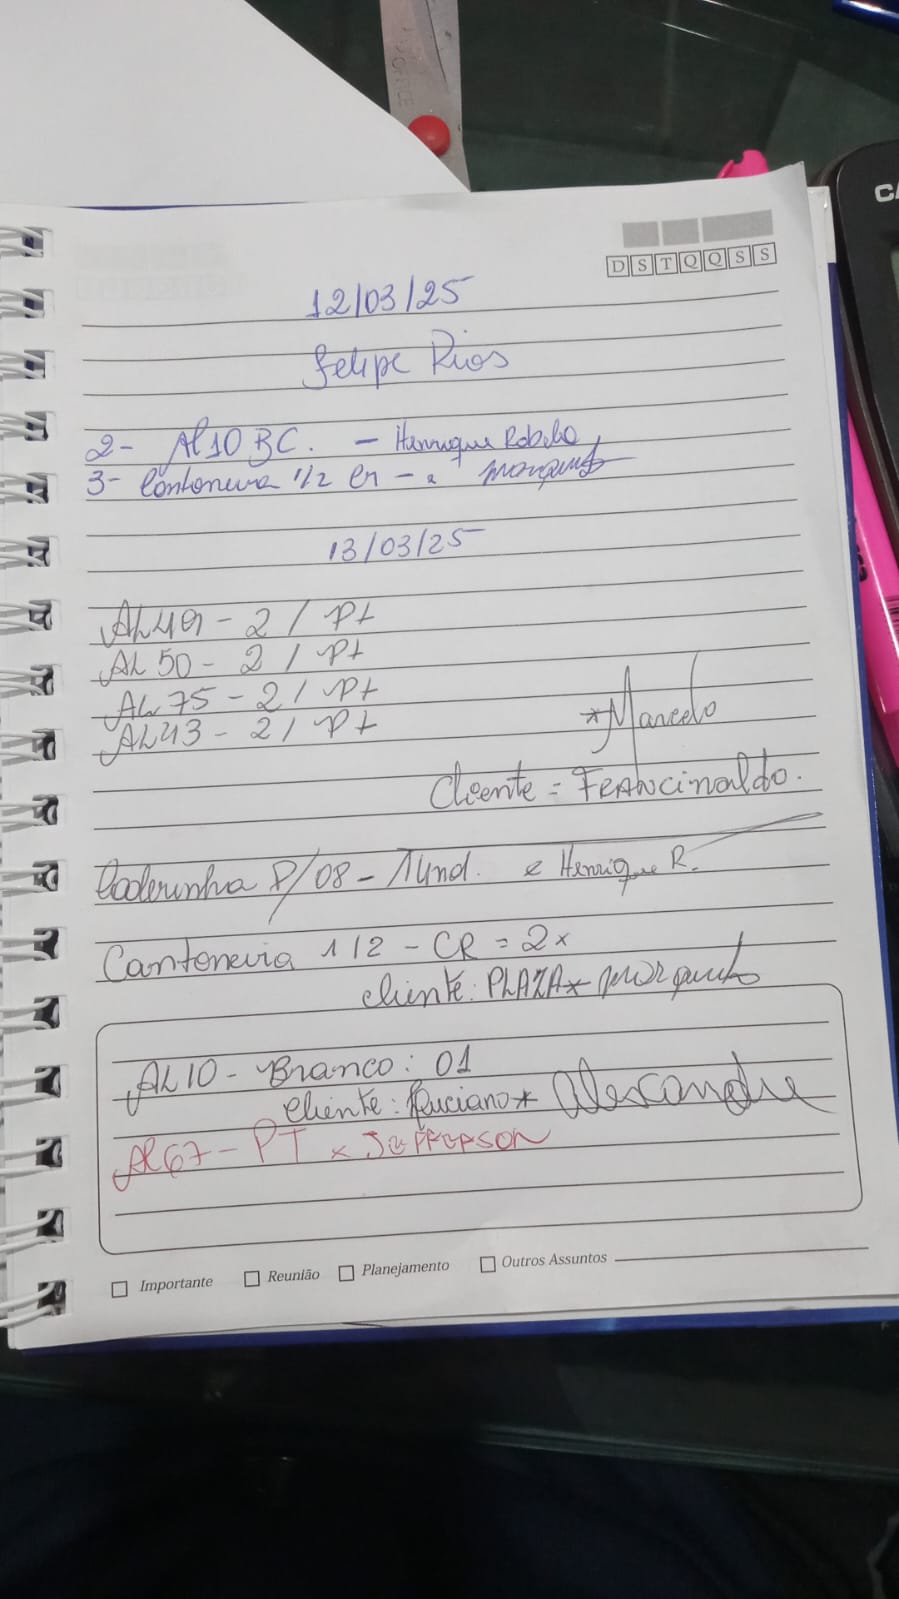 D S T Q Q S S
12/03/25
Felipe Rios
2- AL10 BC. - Henrique
3- Cantoneira 1/2 Cr -
13/03/25
AL49 - 2 / Pt
AL50 - 2 / Pt
AL75 - 2 / Pt
AL43 - 2 / Pt
*Marcelo
Cliente = FRANCinaldo.
P/08 - 1und. Henrique R.
Cantoneira 1/2 - CR = 2x
cliente: PLAZA*
AL10 - Branco: 01
cliente: Luciano* Alexandre
AL67 - PT x JEFFERSON
Importante Reunião Planejamento Outros Assuntos